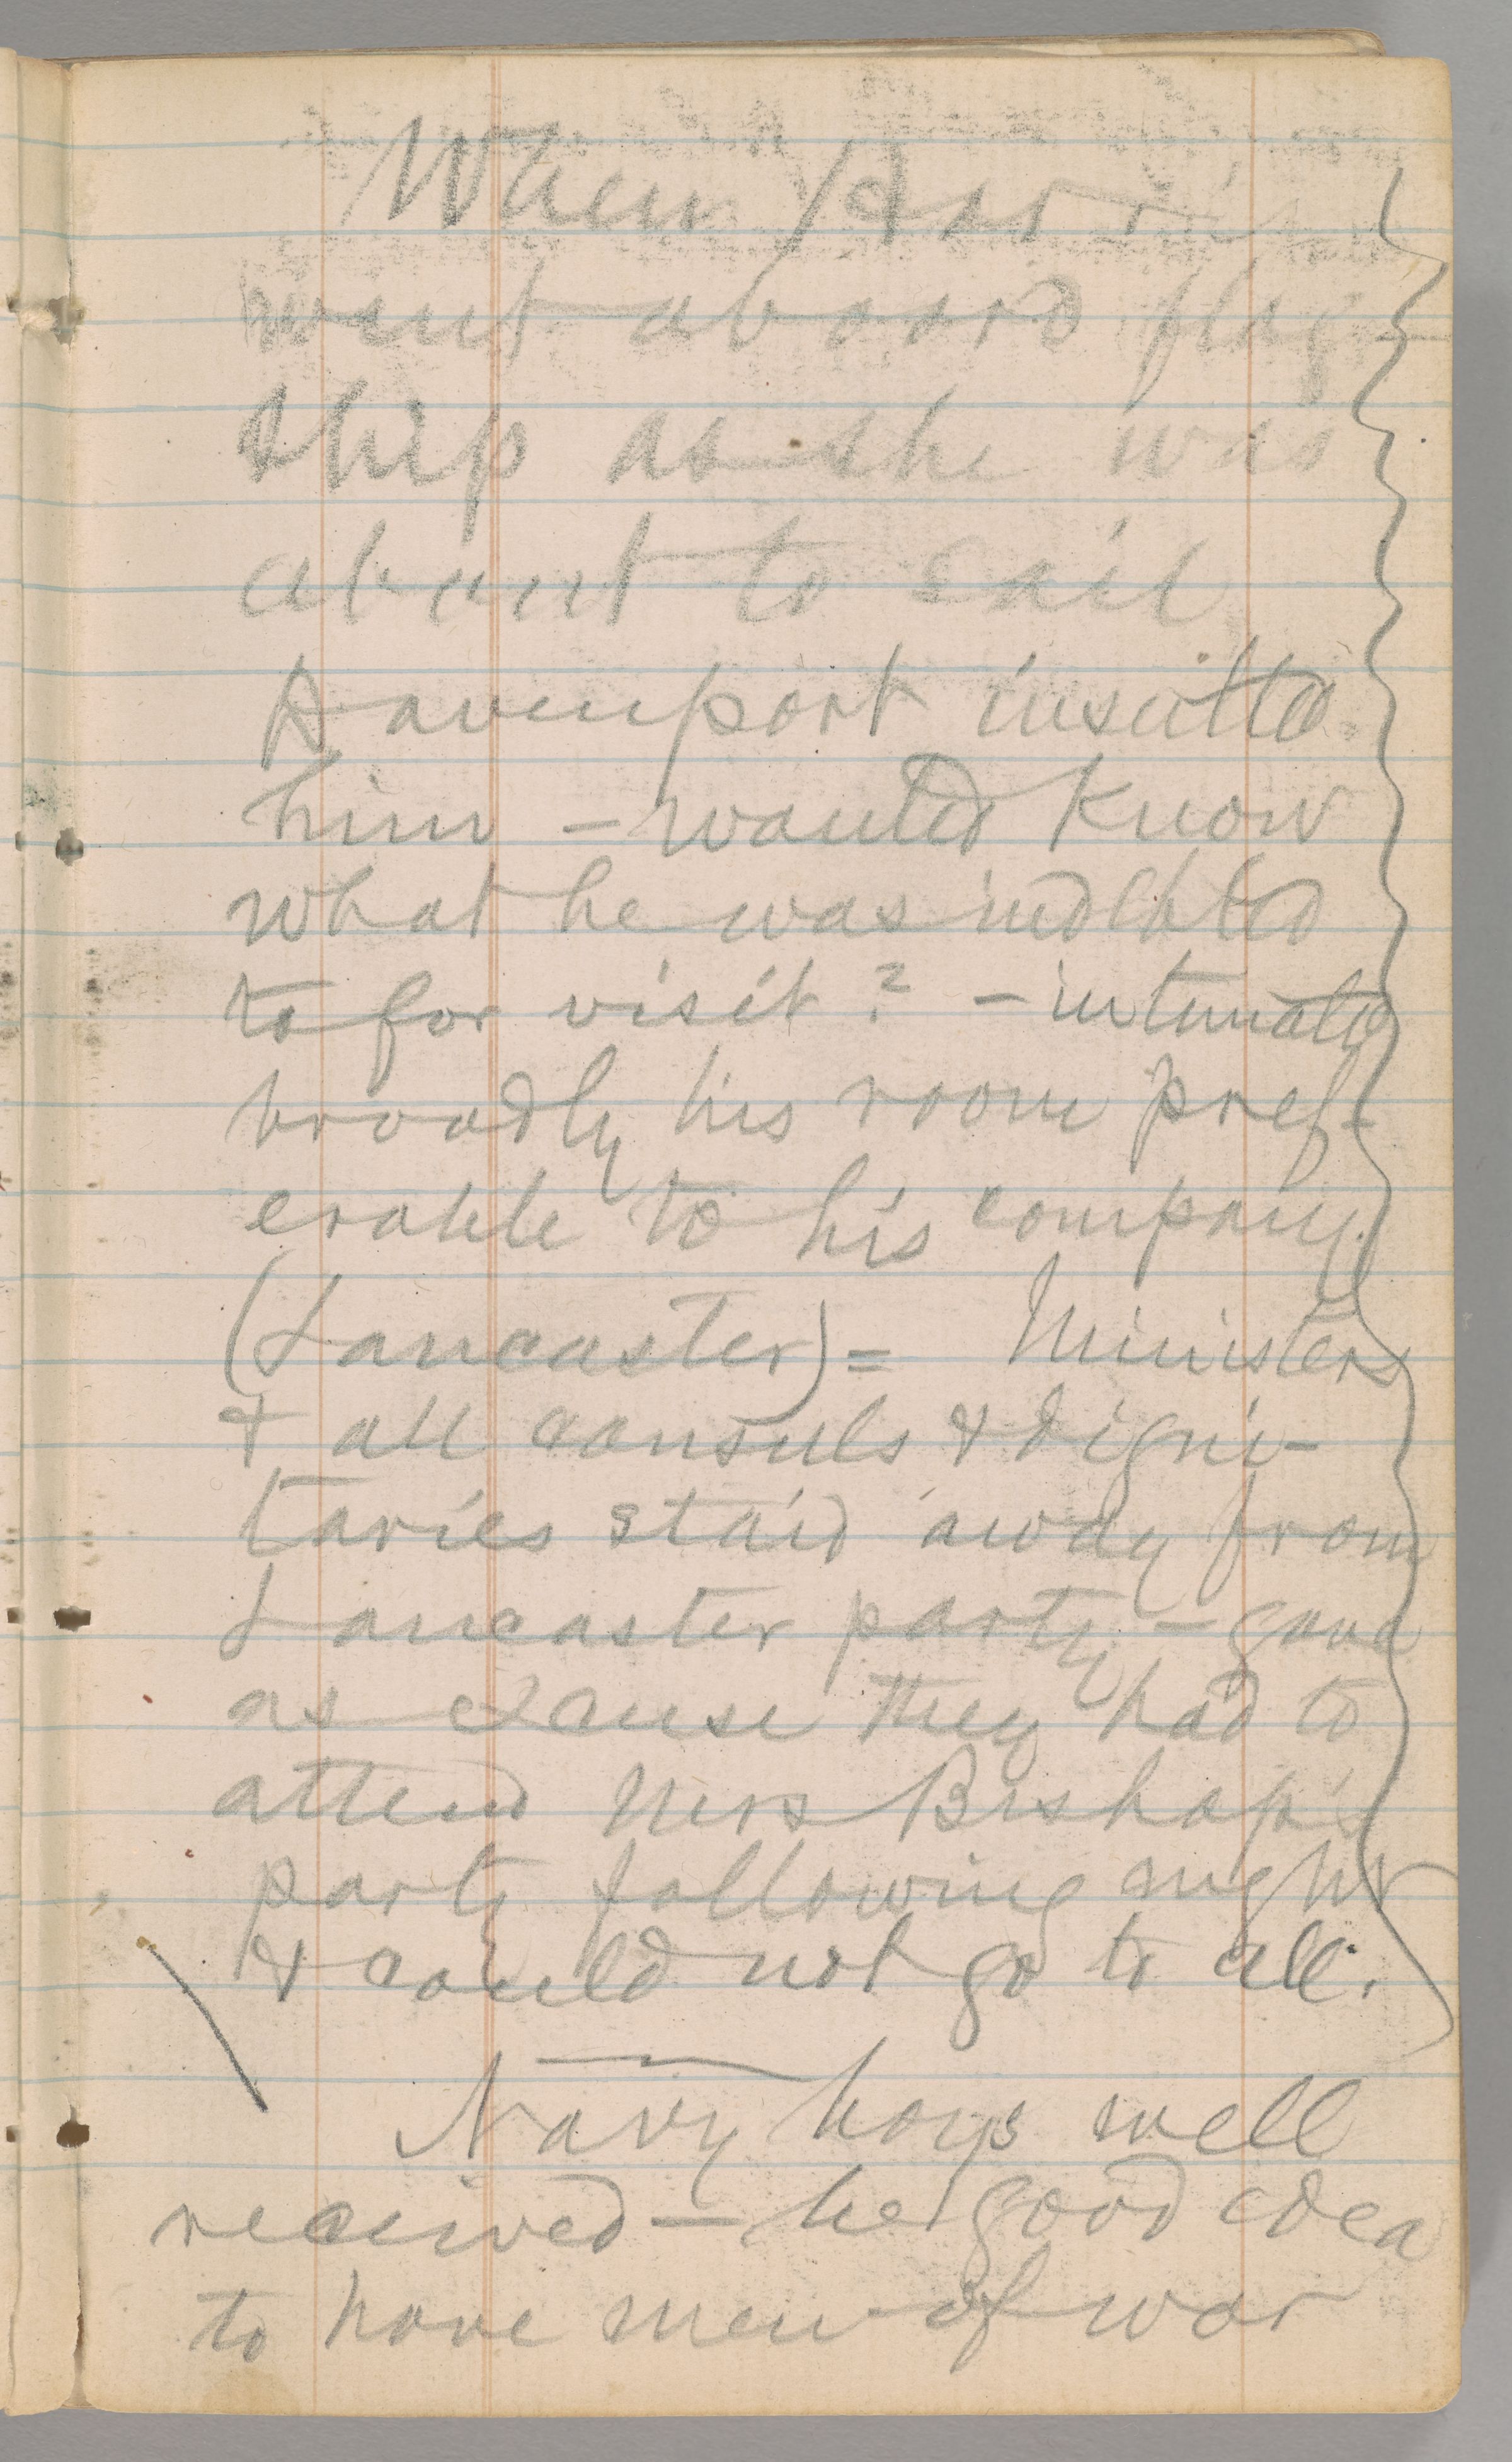 When
went aboard flag-
ship as she was
about to sail
Davenport insulted
him – wanted know
what he was indebted
to for visit? – intimated
broadly his room pref-
erable to his company.
(Lancaster) = Ministers
& all consuls & digni-
taries staid away from
Lancaster party – gave
as excuse they had to
attend Mrs Bishop's
party following night
& could not go to all.
Navy boys well
received – be good idea
to have men-of-war